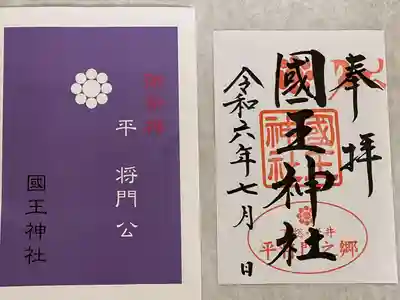 御祭神
平 将門公
國王神社
奉拝
國王神社
令和六年七月 日
國王神社
平将門之郷